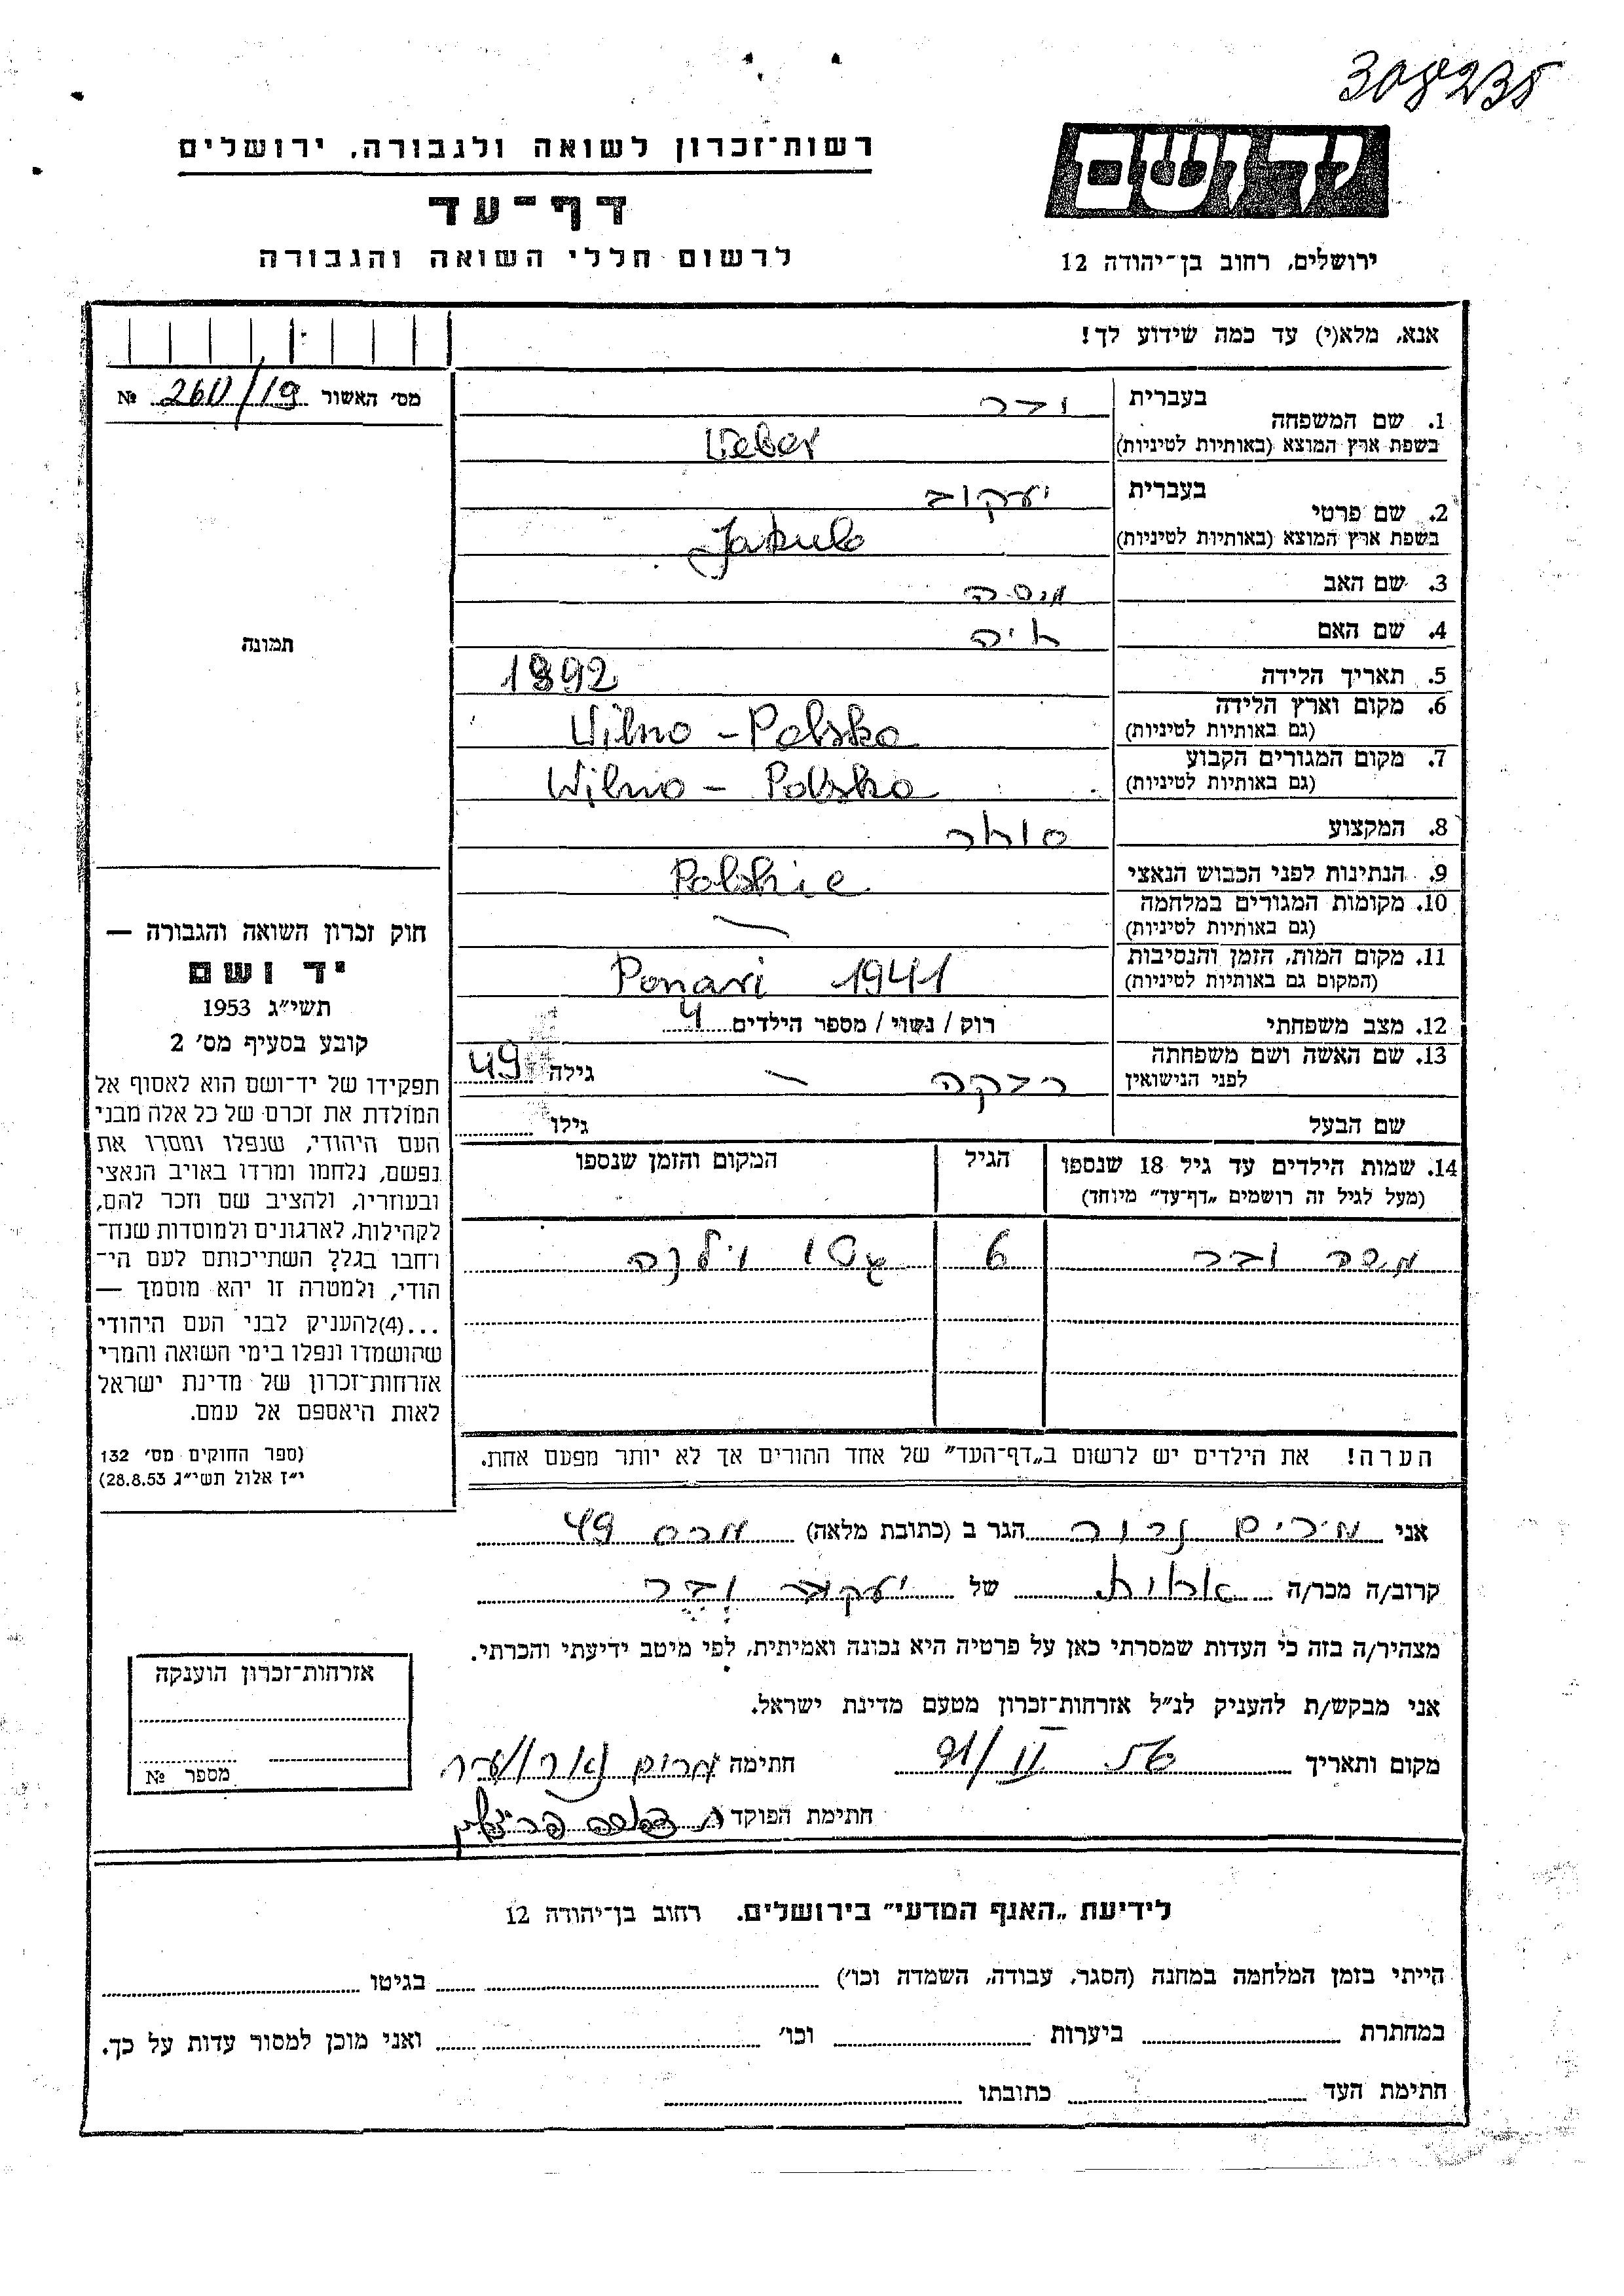 308235
רשות־זכרון לשואה ולגבורה, ירושלים
דף־עד
לרשום חללי השואה והגבורה
יד ושם
ירושלים, רחוב בן־יהודה 12
אנא, מלא(י) עד כמה שידוע לך!
מס׳ האשור 260/19 №
תמונה
1. שם המשפחה
בעברית ובר
בשפת ארץ המוצא (באותיות לטיניות) Veber
2. שם פרטי
בעברית יעקוב
בשפת ארץ המוצא (באותיות לטיניות) Jakub
3. שם האב
4. שם האם
5. תאריך הלידה 1892
6. מקום וארץ הלידה Vilno - Polska
(גם באותיות לטיניות)
7. מקום המגורים הקבוע Wilno - Polska
(גם באותיות לטיניות)
8. המקצוע סוחר
9. הנתינות לפני הכבוש הנאצי Polskie
10. מקומות המגורים במלחמה —
(גם באותיות לטיניות)
11. מקום המות, הזמן והנסיבות Ponari 1941
(המקום גם באותיות לטיניות)
12. מצב משפחתי רוק / נשוי / מספר הילדים 4
13. שם האשה ושם משפחתה רבקה — גילה 49
לפני הנישואין
שם הבעל גילו
14. שמות הילדים עד גיל 18 שנספו הגיל המקום והזמן שנספו
(מעל לגיל זה רושמים „דף־עד״ מיוחד)
ובר 6 גטו וילנה
הערה! את הילדים יש לרשום ב„דף־העד״ של אחד ההורים אך לא יותר מפעם אחת.
חוק זכרון השואה והגבורה —
יד ושם
תשי״ג 1953
קובע בסעיף מס׳ 2
תפקידו של יד־ושם הוא לאסוף אל
המולדת את זכרם של כל אלה מבני
העם היהודי, שנפלו ומסרו את
נפשם, נלחמו ומרדו באויב הנאצי
ובעוזריו, ולהציב שם וזכר להם,
לקהילות, לארגונים ולמוסדות שנח־
רחבו בגלל השתייכותם לעם הי־
הודי, ולמטרה זו יהא מוסמך —
...(4)להעניק לבני העם היהודי
שהושמדו ונפלו בימי השואה והמרי
אזרחות־זכרון של מדינת ישראל
לאות היאספם אל עמם.
(ספר החוקים מס׳ 132
י״ז אלול תשי״ג 28.8.53)
אני מרים הגר ב (כתובת מלאה) 49
קרוב/ה מכר/ה של יעקב ובר
מצהיר/ה בזה כי העדות שמסרתי כאן על פרטיה היא נכונה ואמיתית, לפי מיטב ידיעתי והכרתי.
אני מבקש/ת להעניק לנ״ל אזרחות־זכרון מטעם מדינת ישראל.
מקום ותאריך חתימה
חתימת הפוקד
אזרחות־זכרון הוענקה
מספר №
לידיעת „האגף המדעי״ בירושלים, רחוב בן־יהודה 12
הייתי בזמן המלחמה במחנה (הסגר, עבודה, השמדה וכו׳) בגיטו
במחתרת ביערות וכו׳ ואני מוכן למסור עדות על כך.
חתימת העד כתובתו